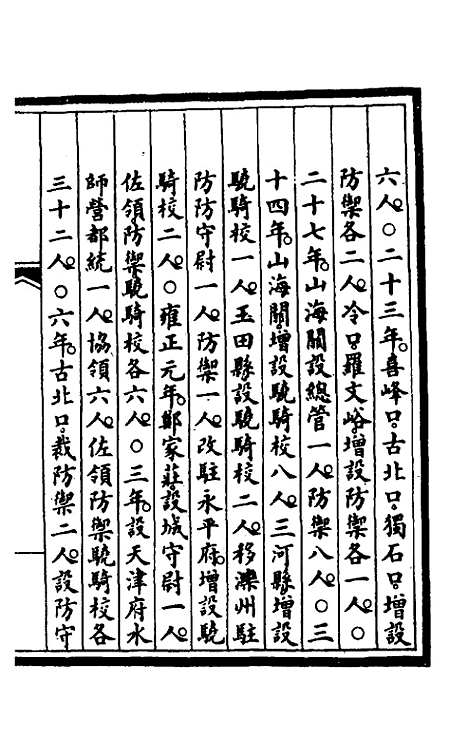 六人。○二十三年。喜峰口。古北口。獨石口。增設
防禦各二人。冷口。羅文峪。增設防禦各一人。○
二十七年。山海關設總管一人。防禦八人。○三
十四年。山海關。增設驍騎校八人。三河縣。增設
驍騎校一人。玉田縣設驍騎校二人。移灤州駐
防防守尉一人。防禦一人。改駐永平府。增設驍
騎校二人。○雍正元年。鄭家莊。設城守尉一人。
佐領。防禦驍騎校各六人。○三年。設天津府水
師營都統一人。協領六人。佐領防禦驍騎校各
三十二人。○六年。古北口。裁防禦二人。設防守